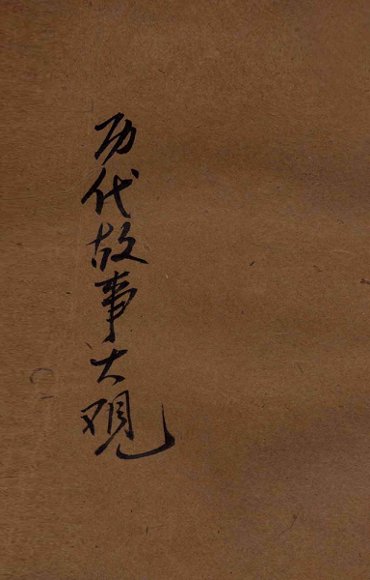 历代故事大观